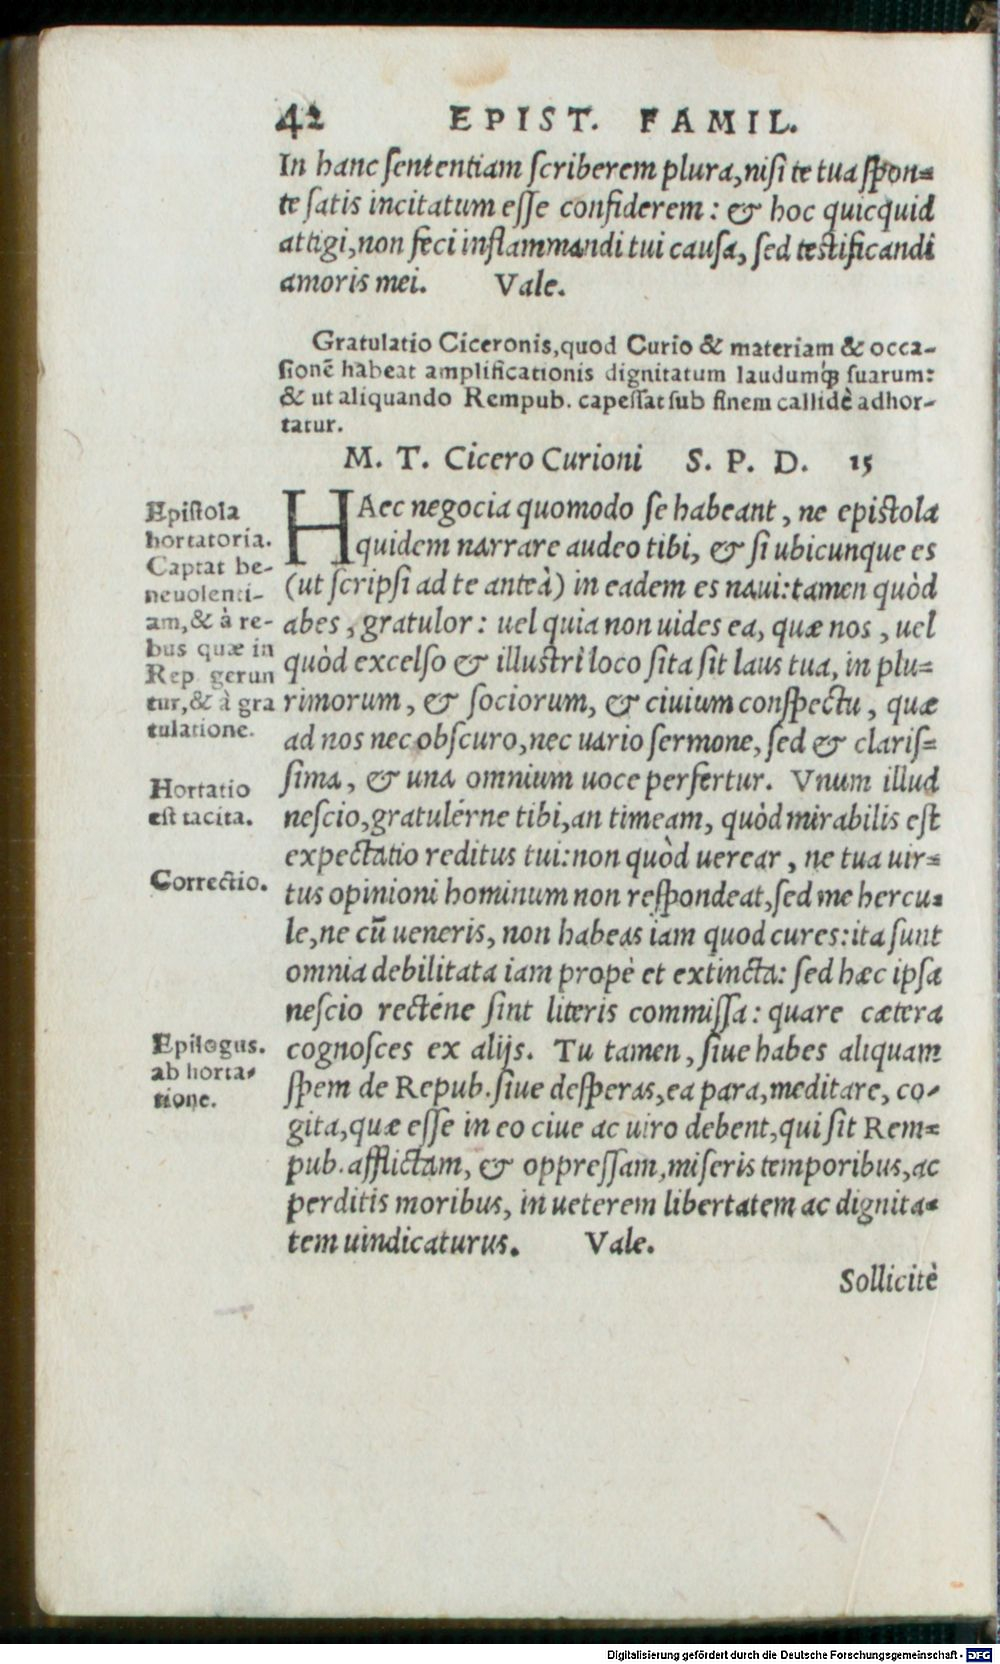 42 EPIST. FAMIL.
In hanc sententiam scriberem plura, nisi te tua spon=
te satis incitatum esse confiderem: & hoc quicquid
attigi, non feci inflammandi tui causa, sed testificandi
amoris mei. Vale.
Gratulatio Ciceronis, quod Curio & materiam & occa-
sionē habeat amplificationis dignitatum laudumq́; suarum:
& ut aliquando Rempub. capessat sub finem callidè adhor-
tatur.
M. T. Cicero Curioni S. P. D. 15
Epistola
hortatoria.
Captat be-
neuolenti-
am, & à re-
bus quæ in
Rep gerun
tur, & à gra
tulatione.
Hortatio
est tacita.
Correctio.
Epilogus.
ab horta-
tione.
HAec negocia quomodo se habeant, ne epistola
quidem narrare audeo tibi, & si ubicunque es
(ut scripsi ad te anteà) in eadem es naui: tamen quòd
abes, gratulor: uel quia non uides ea, quæ nos, uel
quòd excelso & illustri loco sita sit laus tua, in plu=
rimorum, & sociorum, & ciuium conspectu, quæ
ad nos nec obscuro, nec uario sermone, sed & claris=
sima, & una omnium uoce perfertur. Vnum illud
nescio, gratulérne tibi, an timeam, quòd mirabilis est
expectatio reditus tui: non quòd uerear, ne tua uir=
tus opinioni hominum non respondeat, sed me hercu=
le, ne cū ueneris, non habeas iam quod cures: ita sunt
omnia debilitata iam propè et extincta: sed hæc ipsa
nescio recténe sint literis commissa: quare cætera
cognosces ex alijs. Tu tamen, siue habes aliquam
spem de Repub. siue desperas, ea para, meditare, co-
gita, quæ esse in eo ciue ac uiro debent, qui sit Rem=
pub. afflictam, & oppressam, miseris temporibus, ac
perditis moribus, in ueterem libertatem ac dignita=
tem uindicaturus. Vale.
Sollicitè
Digitalisierung gefördert durch die Deutsche Forschungsgemeinschaft - DFG